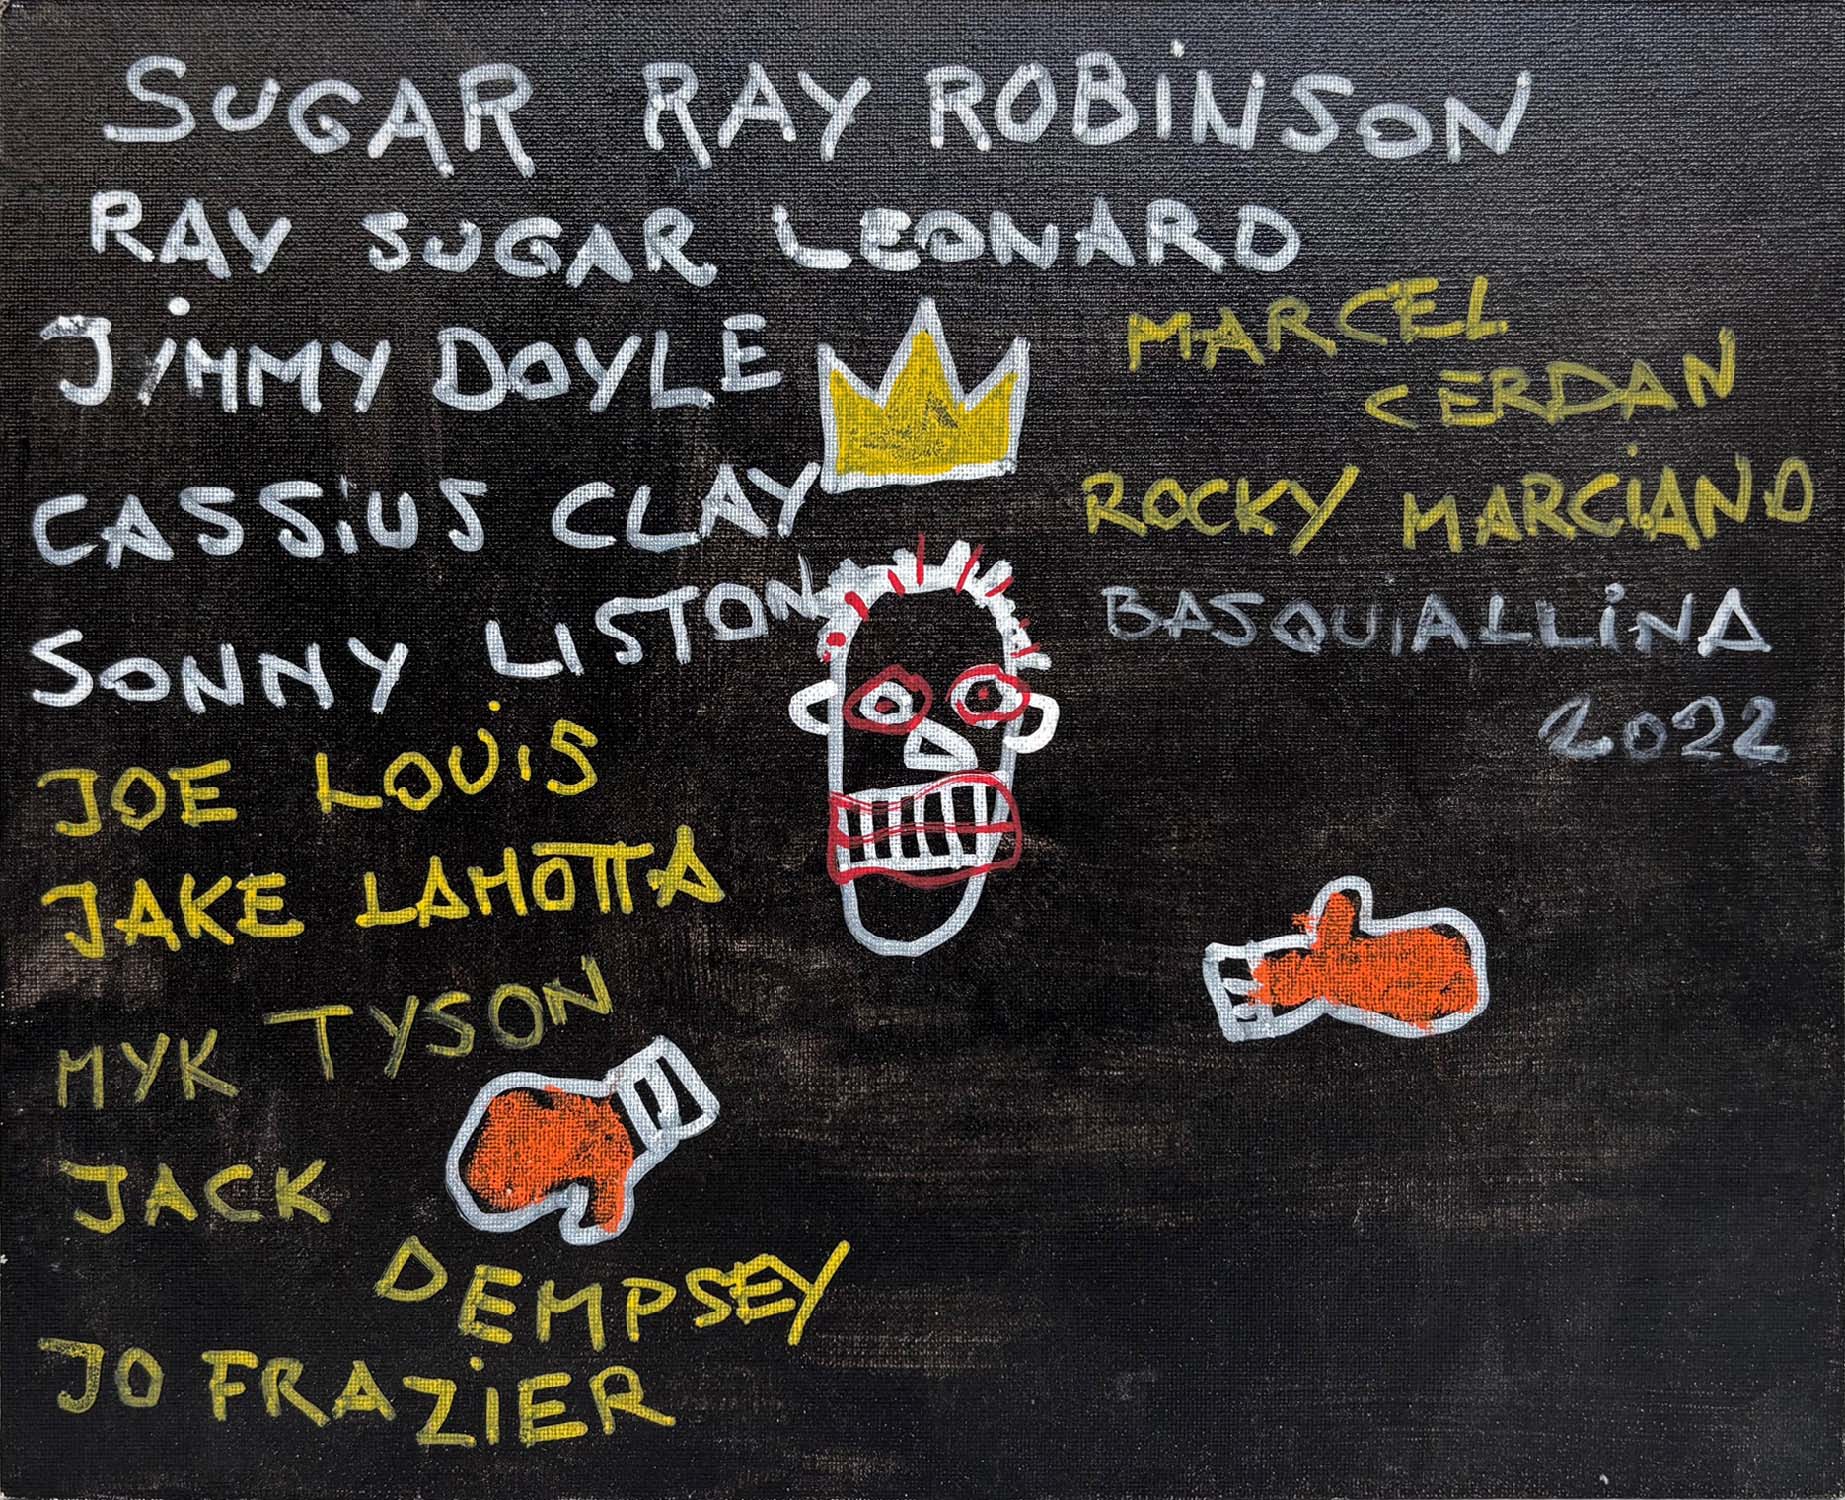 SUGAR RAY ROBiNSON
RAY SUGAR LEONARD
JiMMY DOYLE
CASSiUS CLAY
SONNY LISTON
JOE LOUiS
JAKE LAMOTTA
MYK TYSON
JACK
DEMPSEY
JO FRAZiER
MARCEL
CERDAN
ROCKY MARCiANO
BASQUIALLiNA
2022